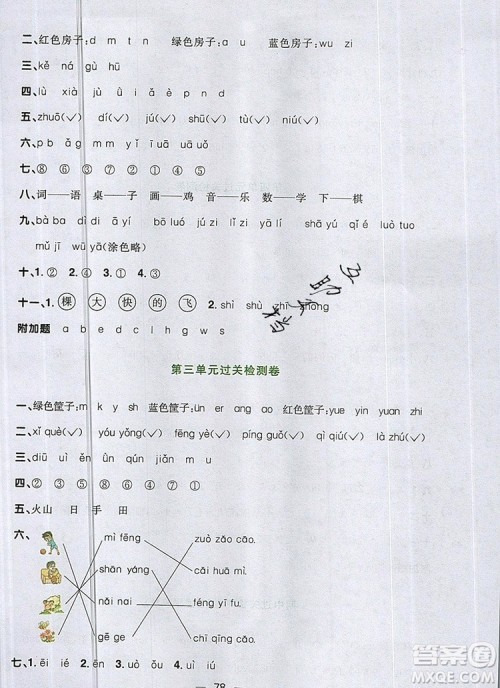 二、红色房子:d m t n 绿色房子:ɑ u 蓝色房子:wu zi
三、kě ná gù hū
四、lǜ u n e l i p ü nd
五、zhuō(✓) dí(✓) jú(✓) shū(✓) tǔ(✓) níu(✓)
六、p b ǎ ɡ m à t ì k ā t ù ɑ
七、⑧ ⑥ ③ ② ① ⑦ ④ ⑤
八、词——语 桌——子 画——鸡 音——乐 数——学 下——棋
九、bà ba dì di ā yí bō luó jú zi lǐ zi yā lí shā yú qí é luò tuo
mǔ jī wū yā(涂色略)
十、1.② 2.④ 3.① 4.③
十一、1.棵 大 快 的 飞 2.shǐ shù zhī zhōng
附加题 a b e d c g f h
第三单元过关检测卷
一、绿色筐子:m k y sh 蓝色筐子:ün er ang ao 红色筐子:yue yin yuan zhi
二、xǐ què(✓) yóu yǒng(✓) fēng yè(✓) píng guǒ(✓) qí é(✓) lǎo shǔ(✓)
三、diū uì ěn ǔn iě ōu
四、② ① ③ ⑤ ④ ⑥
五、火山 日 手 田
六、mì fēng zuò zǎo cāo.
shān yáng cǎi huā mì.
nǎi nai féng yī fu.
gē ge chī qīng cǎo.
七、1.ēi ié 2.én ǒ 3.uò ǒu 4.uì iú
78
答案圈
MXQE.COM